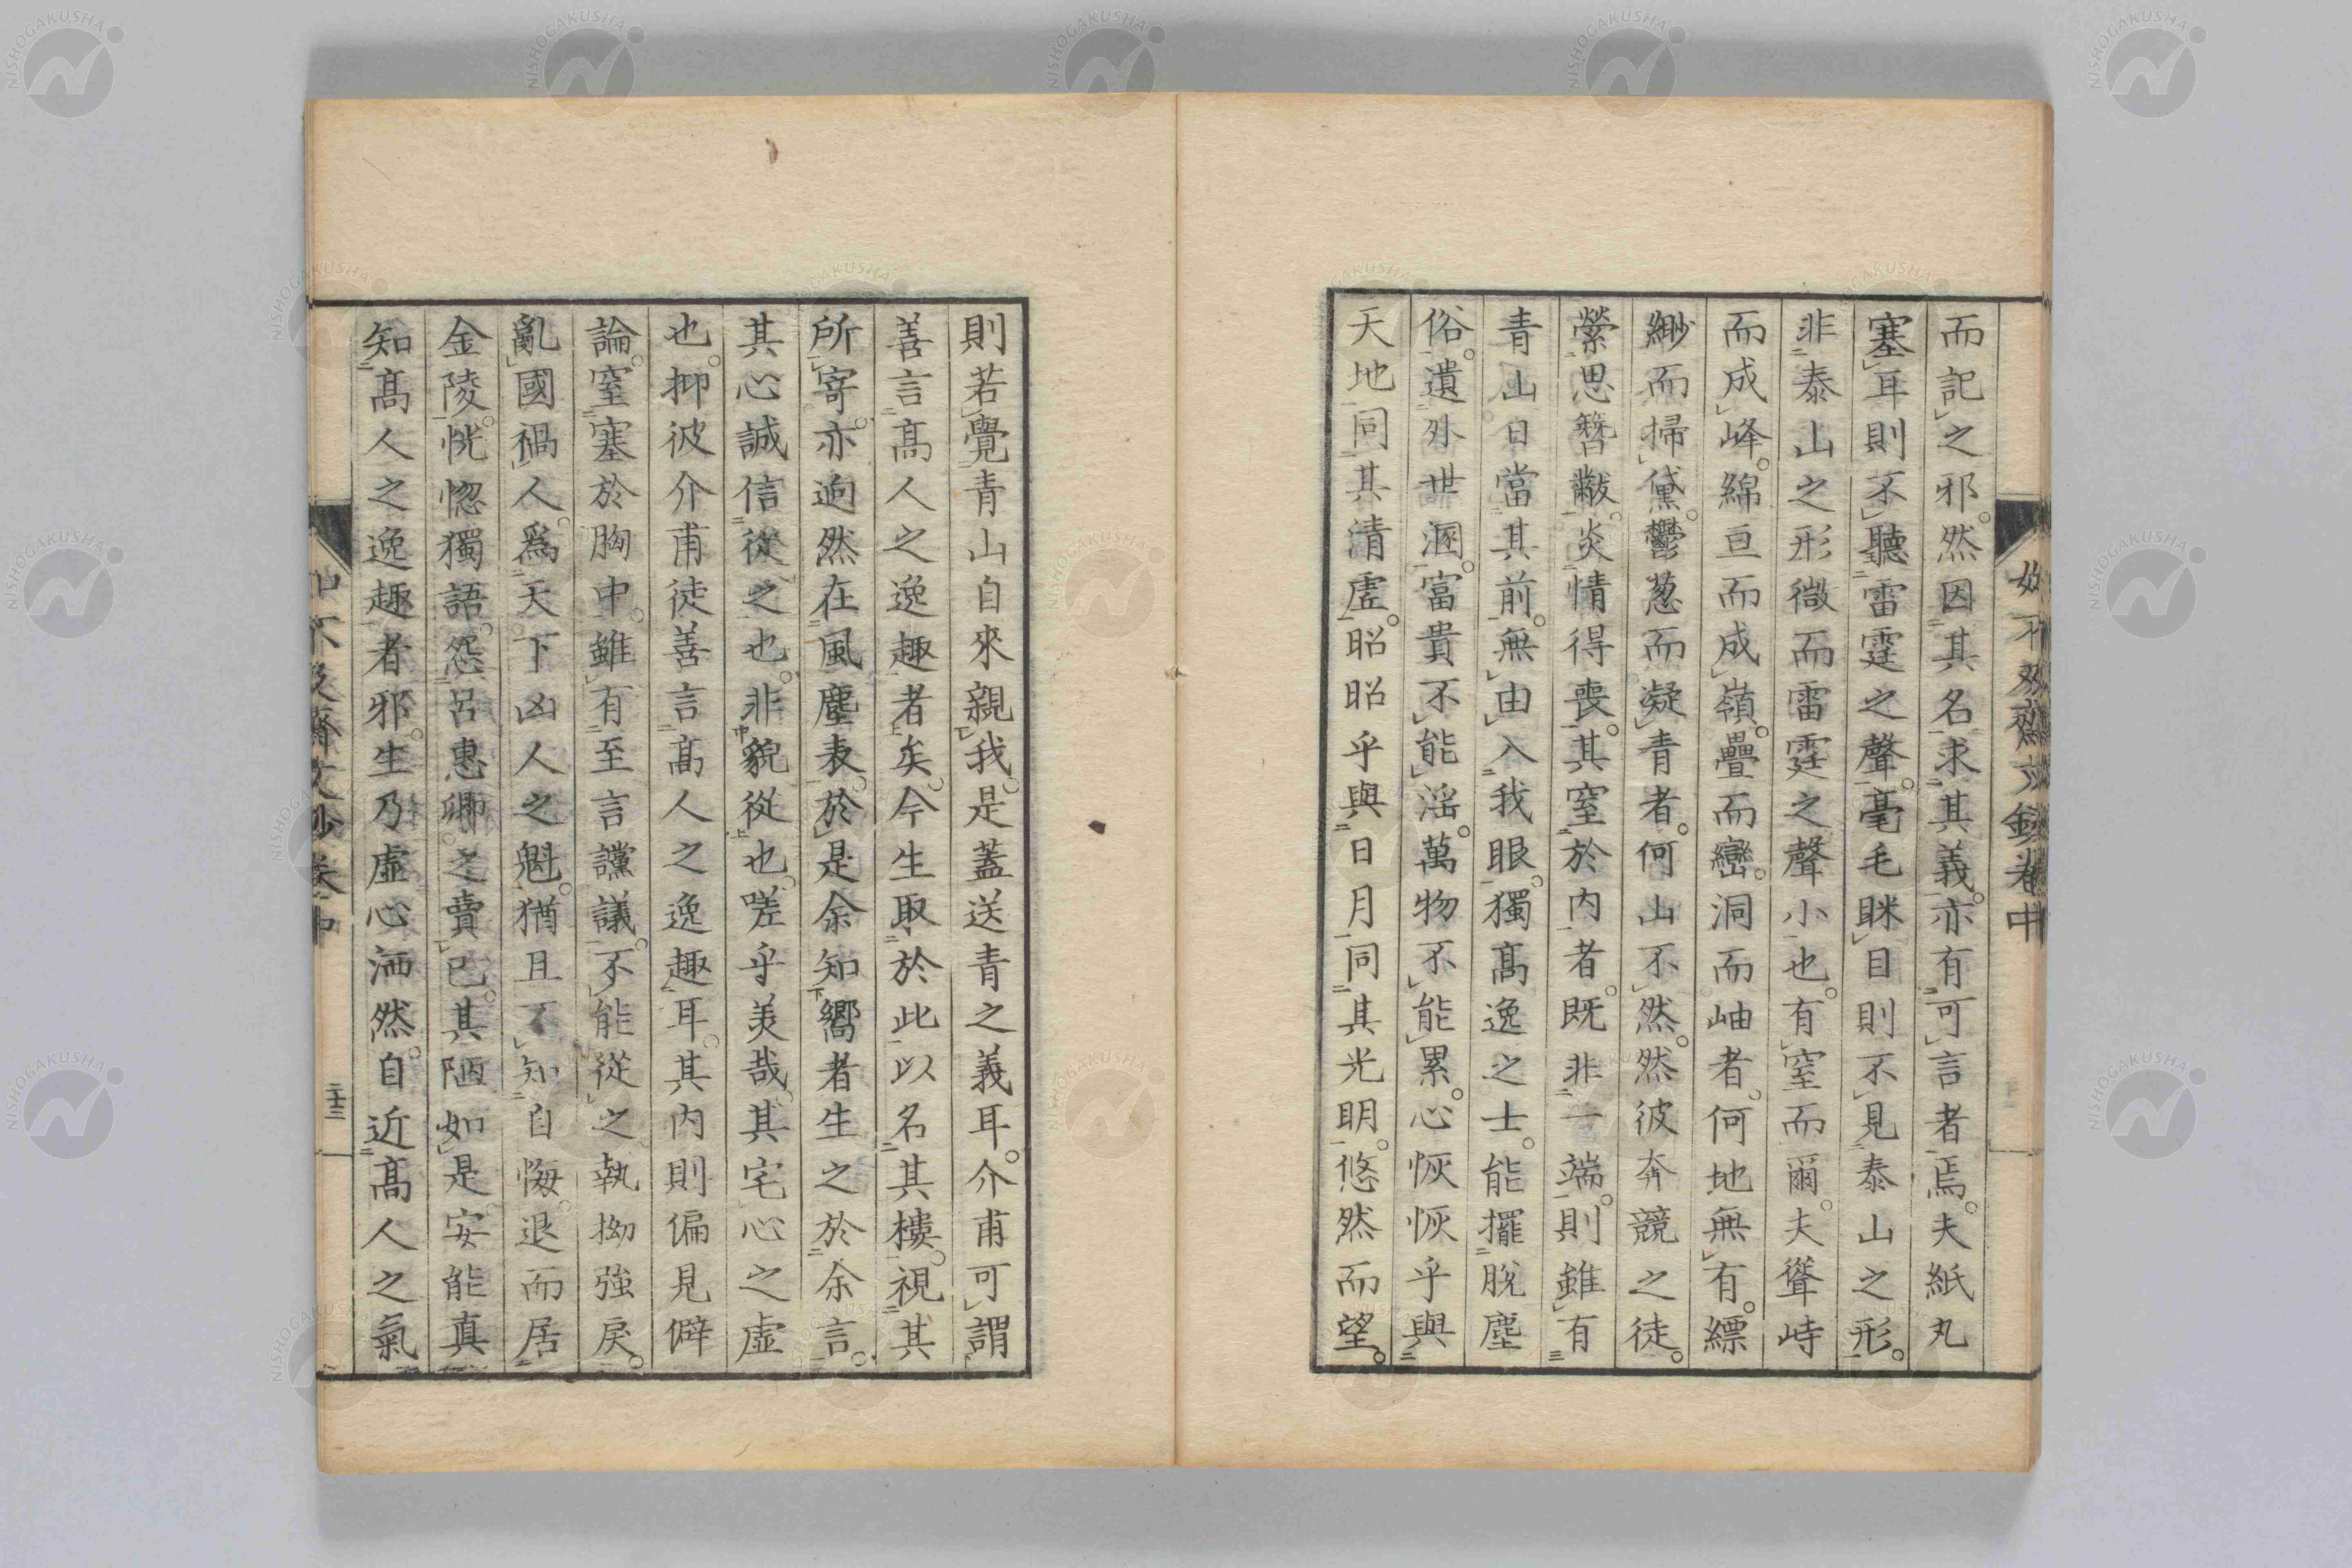 而記之邪。然因其名求其義。亦有可言者焉。夫紙丸
塞耳則不聽雷霆之聲。毫毛眯目則不見泰山之形。
非泰山之形微而雷霆之聲小也。有窒而爾。夫聳峙
而成峰。綿亘而成嶺。疊而巒。洞而岫者。何地無有。縹
緲而掃黛。鬱葱而凝青者。何山不然。然彼奔競之徒。
縈思簪黻。炎情得喪。其窒於内者。既非一端。則雖有
青山日當其前。無由入我眼。獨髙逸之士。能擺脫塵
俗。遺外世溷。富貴不能淫。萬物不能累。心恢恢乎與
天地同其清虛。昭昭乎與日月同其光明。悠然而望。
則若覺青山自來親我。是蓋送青之義耳。介甫可謂
善言髙人之逸趣者矣。今生取於此以名其樓。視其
所寄。亦逈然在風塵表。於是余知嚮者生之於余言。
其心誠信從之也。非貌從也。嗟乎美哉。其宅心之虛
也。抑彼介甫徒善言髙人之逸趣耳。其内則偏見僻
論。窒塞於胸中。雖有至言讜議。不能從之執拗強戾。
亂國禍人。爲天下凶人之魁。猶且不知自悔。退而居
金陵。恍惚獨語。怨呂惠卿之賣己。其陋如是。安能真
知髙人之逸趣者邪。生乃虛心洒然。自近髙人之氣
如不及齋文鈔卷中
二十三
NISHOGAKUSHA